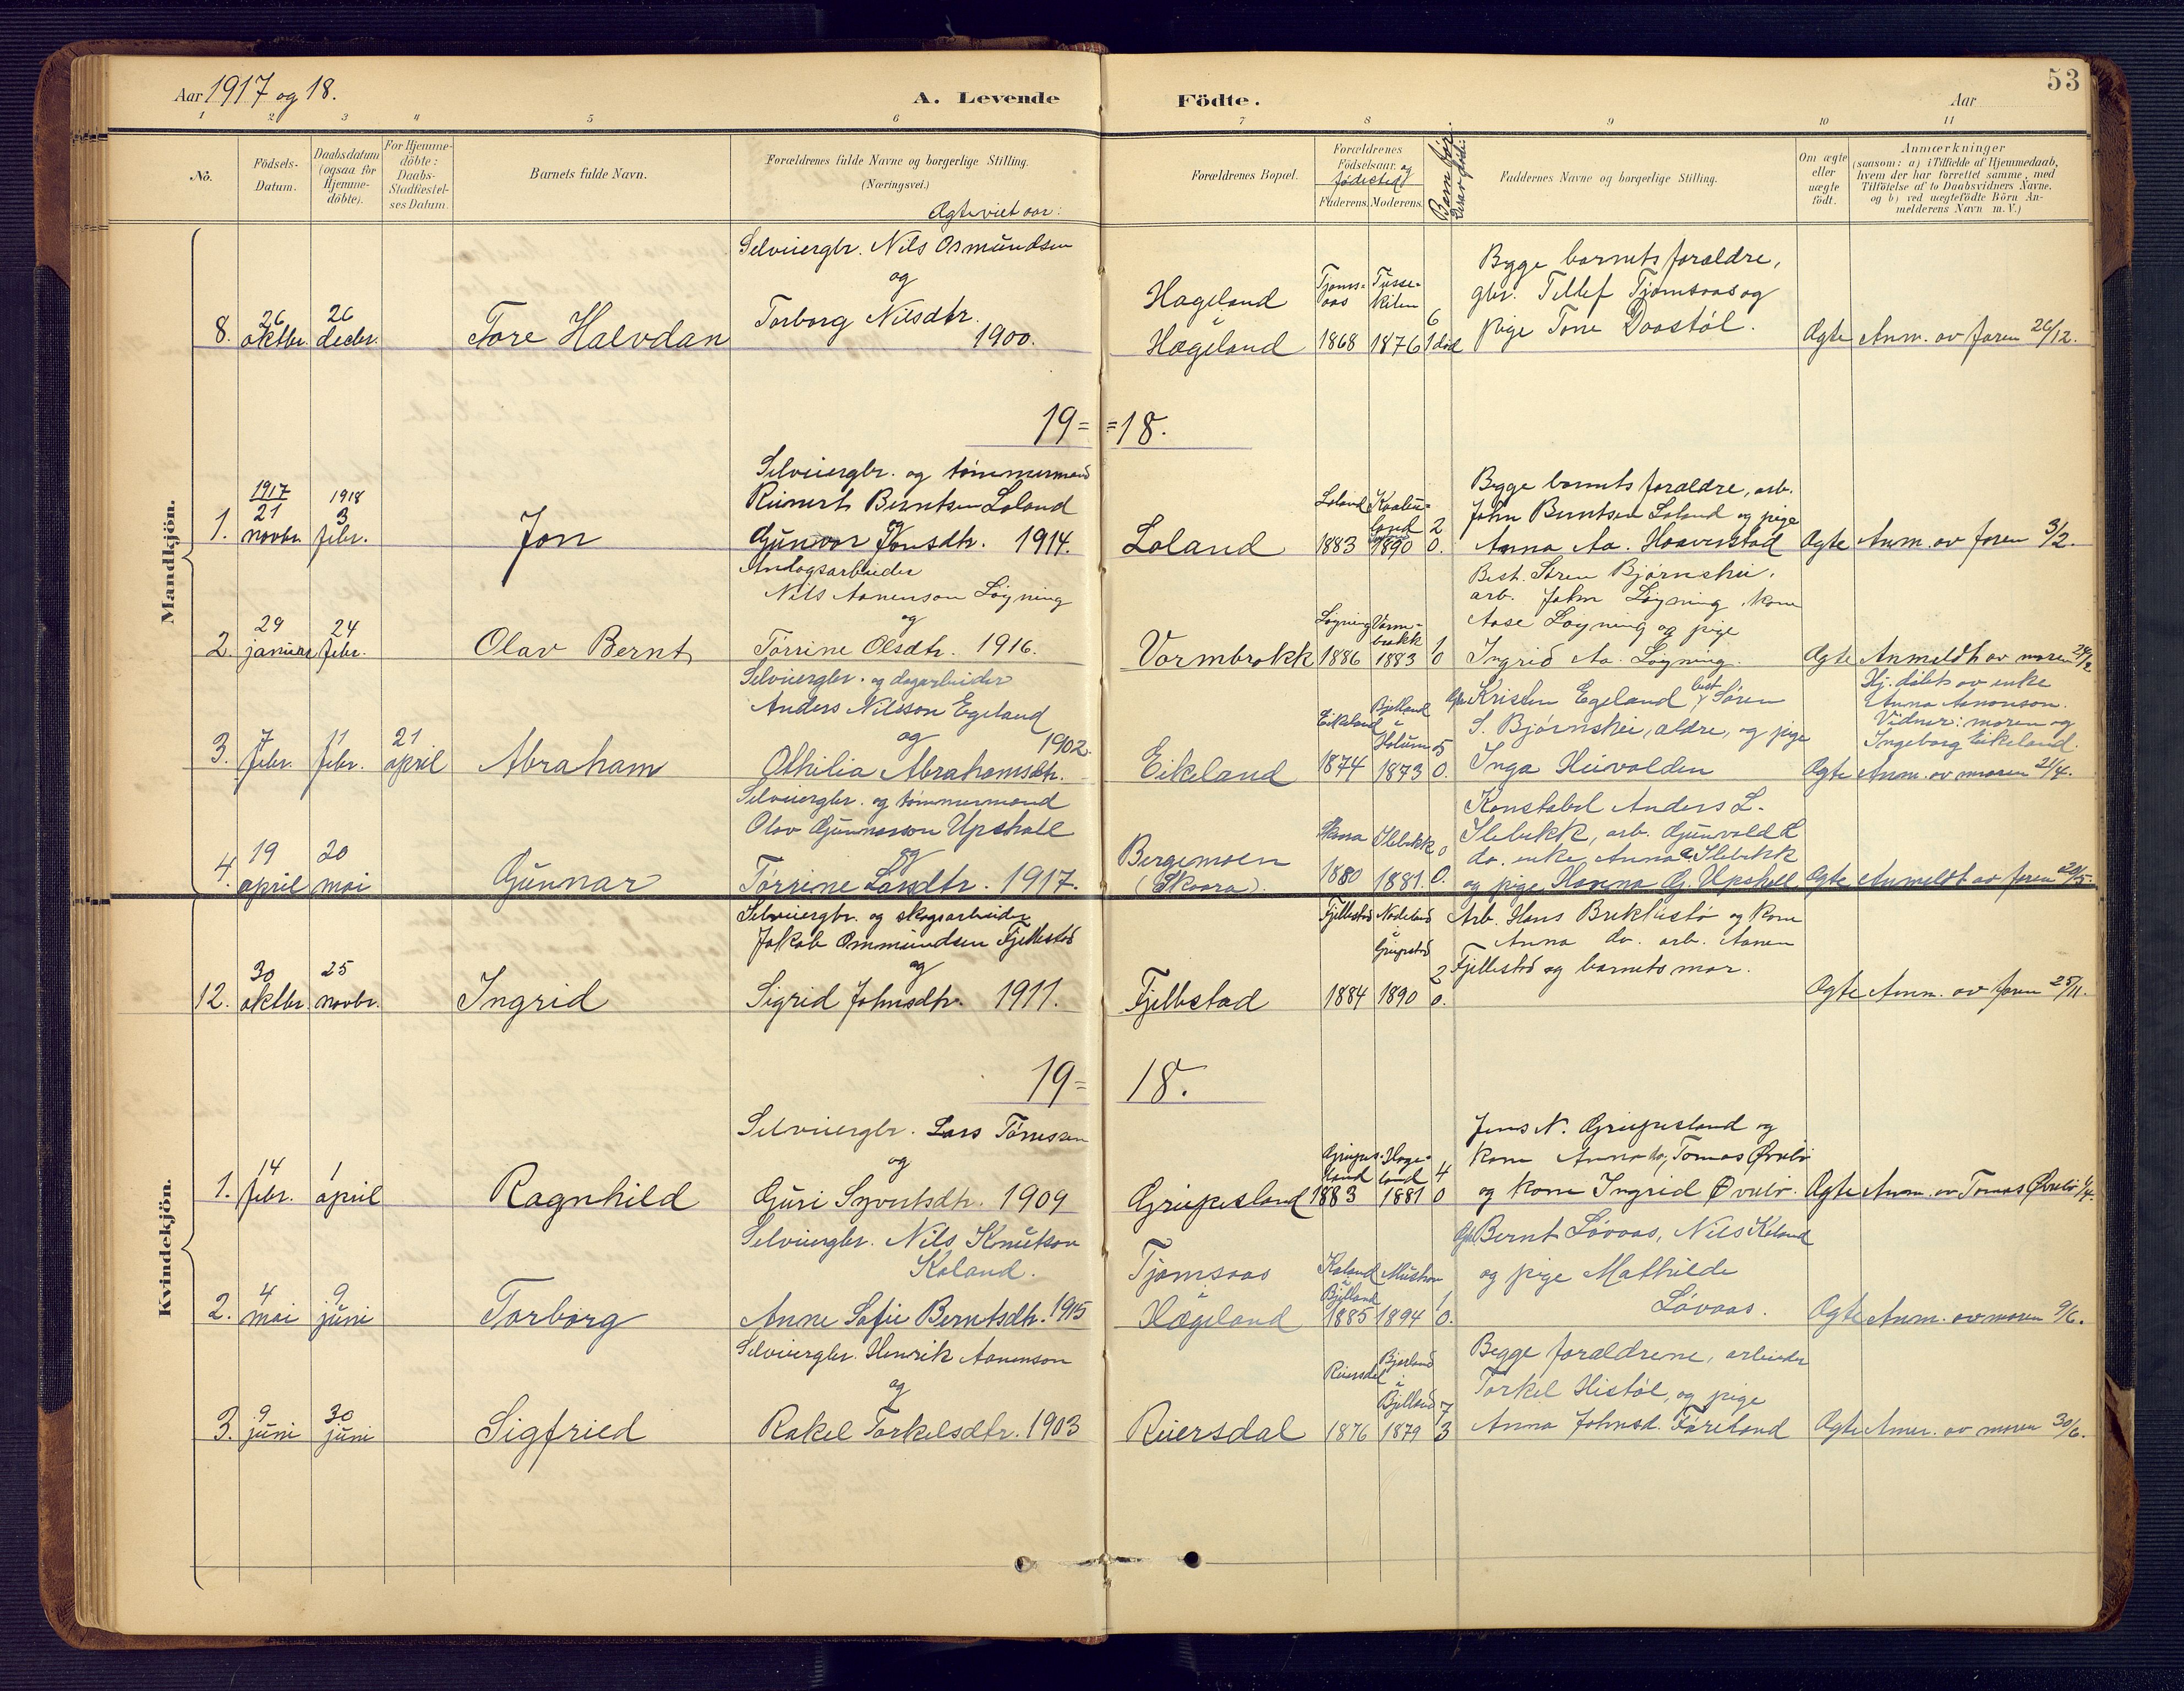 Aar 1917 og 18.
A. Levende Födte.
Aar
53
1 2 3 4 5 6 7 8 9 10 11
No.
Födsels-Datum.
Daabsdatum (ogsaa for Hjemme-döbte).
For Hjemme-döbte: Daabs-Stadfæstel-ses Datum.
Barnets fulde Navn.
Forældrenes fulde Navne og borgerlige Stilling.
(Næringsvei.)
Ægteviet aar:
Forældrenes Bopæl.
Forældrenes Födselsaar. og fødested
Faderens. Moderens.
Faddernes Navne og borgerlige Stilling.
Om ægte eller uægte födt.
Anmærkninger
(saasom: a) i Tilfælde af Hjemmedaab, hvem der har forrettet samme, med Tilföielse af to Daabsvidners Navne, og b) ved uægtefödte Börn Anmelderens Navn m. V.)
Mandkjön.
8. 26 oktbr. 26 decbr. Tore Halvdan
Selveiergbr. Nils Osmundsen
og
Torborg Nilsdtr.
1900.
Hægeland
i
Hægeland
Tjoms-aas 1868
Tusse-kilen 1876
6
1 død
Begge barnets forældre,
gbr. Tellef Tjomsaas og
pige Tone Daastøl.
Ægte Anm. av faren 26/12.
19= =18.
1. 1917 21 novbr. 1918 3 febr. Jon
Selveiergbr. og tømmermand
Reinert Berntsen Loland
og
Gunvor Jonsdtr. 1914.
Loland
Loland 1883
1890
2
0.
Begge barnets forældre, arb.
John Berntsen Loland og pige
Anna Aa. Haaverstad
Ægte Anm. av faren 3/2.
2. 29 januar 24 febr. Olav Bernt
Anlægsarbeider
Nils Aanenson Løyning
og
Tørrine Olsdtr. 1916.
Vormbrokk
Løyning 1886
Vorm-brokk 1883
1
0
Best. Søren Bjørnshei,
arb. John Løyning, kone
Aase Løyning og pige
Ingrid Aa. Løyning.
Ægte Anmeldt av moren 24/2
3. 7 febr. 11 febr. 21 april Abraham
Selveiergbr. og dagarbeider
Anders Nilsson Egeland
og 1902.
Othilia Abrahamsdtr.
Eikeland
Eikeland 1874
Bjelland i Holum 1873
5
0.
Gbr. Kristen Egeland, best. Søren
S. Bjørnshei, ældre, og pige
Inga Heivolden
Hj. døbt av enke
Anna Aanonson.
Vidner: moren og
Ingeborg Eikeland.
Ægte Anm. av moren 21/4.
4. 19 april 20 mai Gunnar
Selveiergbr. og tømmermand
Olav Gunnarson Upstall
og
Tørrine Larsdtr. 1917.
Bergemoen
(Skaara).
Skaara 1880
Ilebekk 1881.
0
0.
Konstabel Anders L.
Ilebekk, arb. Gunvald L
do. enke Anna Ilebekk
og pige Hanna G. Upstall.
Ægte Anmeldt av faren 20/5.
Kvindekjön.
12. 30 oktbr. 25 novbr. Ingrid
Selveiergbr. og skogsarbeider
Jakob Ommundsen Fjellestad
og
Sigrid Johnsdtr. 1911.
Fjellestad
Fjellestad 1884
Nodeland i Greipstad 1890
2
0.
Arb. Hans Brekkestø og kone
Anna do. arb. Aanen
Fjellestad og barnets mor.
Ægte Anm. av faren 25/11.
19= 18.
1. 14 febr. 1 april Ragnhild
Selveiergbr. Lars Tønnessen
og
Guri Syvertsdtr. 1909
Greipesland
Greipes-land 1883
Hæge-land 1881
4
0
Jens N. Greipesland og
kone Anna do, Tomas Øvrebø
og kone Ingrid Øvrebø.
Ægte Anm. av Tomas Øvrebø 1/4.
2. 4 mai 9 juni Torborg
Selveiergbr. Nils Knutson
Kaland.
Anne Sofie Berntsdtr. 1915
Tjomsaas
i
Hægeland
Kaland i Bjelland 1885
1894
1
0.
Gbr. Bernt Løvaas, Nils Kaland
og pige Mathilde
Løvaas.
Ægte Anm. av moren 9/6.
3. 9 juni 30 juni Sigfried
Selveiergbr. Henrik Aanenson
og
Rakel Torkelsdtr. 1903
Reiersdal
Reiersdal 1876
Bjelland 1879
7
3
Begge forældrene, arbeider
Torkel Histøl, og pige
Anna Johnsd. Føreland
Ægte Anm. av moren 30/6.